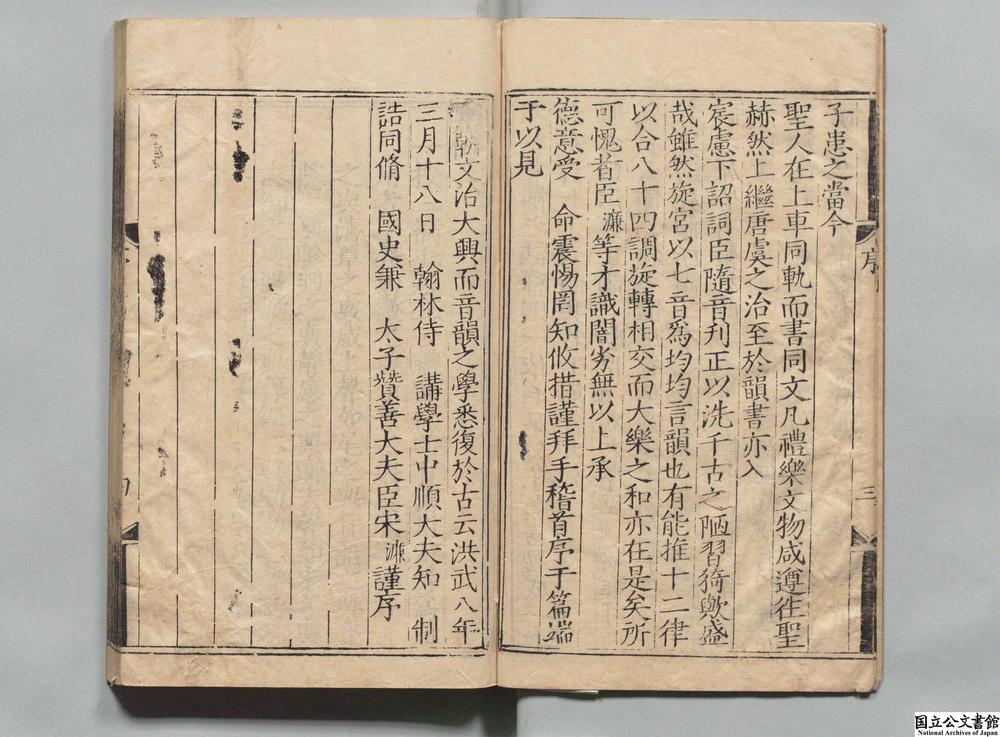 子患之當今
聖人在上車同軌而書同文凡禮樂文物咸遵徃聖
赫然上繼唐虞之治至於韻書亦入
宸慮下詔詞臣隨音刋正以洗千古之陋習猗歟盛
哉雖然旋宮以七音爲均均言韻也有能推十二律
以合八十四調旋轉相交而大樂之和亦在是矣所
可愧者臣濂等才識闇劣無以上承
德意受 命震惕罔知攸措謹拜手稽首序于篇端
于以見
朝文治大興而音韻之學悉復於古云洪武八年
三月十八日 翰林侍 講學士中順大夫知 制
誥同脩 國史兼 太子贊善大夫臣宋濂謹序
序
三
国立公文書館
National Archives of Japan